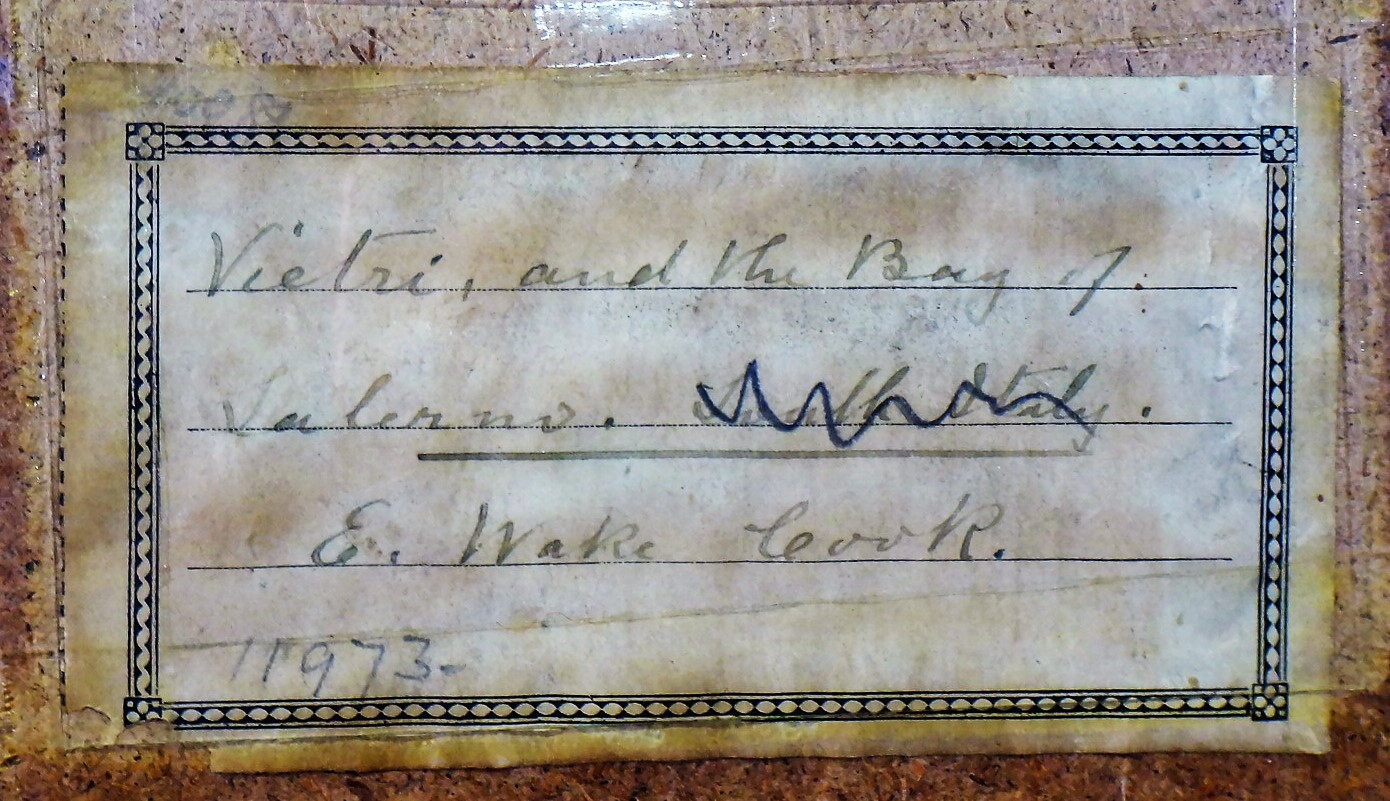 Vietri, and the Bay of.
Salerno. South Italy.
E. Wake Cook.
11973-